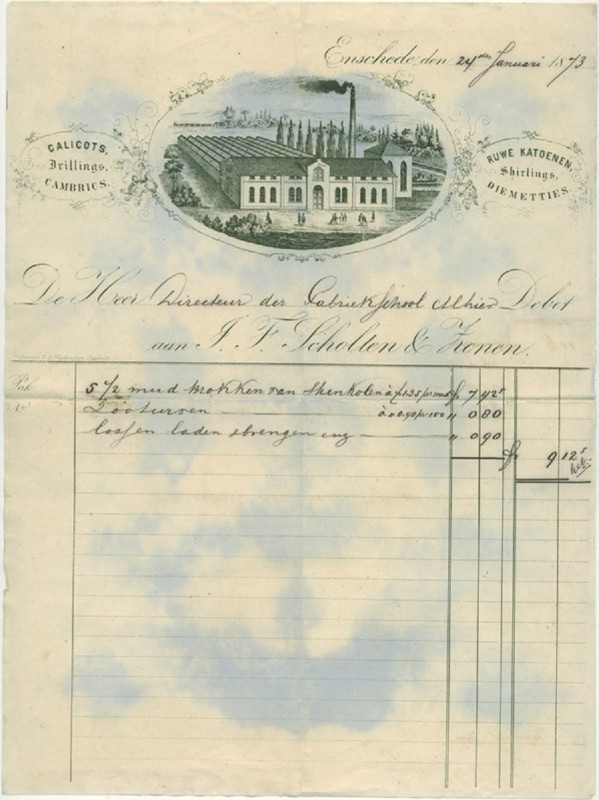 Enschede, den 24sten Januari 1873
CALICOTS.
Drillings.
CAMBRICS.
RUWE KATOENEN.
Shirtings.
DIEMETTIES.
De Heer Directeur der Fabriekschool Alhier Debet
aan J. F. Scholten & Zonen.
Pak
No
5 1/2 mud brokken van Steenkolen à f 1.35 pr mud f 7,425
200 turven à 0.40 pr 100 " 0 80
lossen laden brengen enz " 0 90
f 9 125